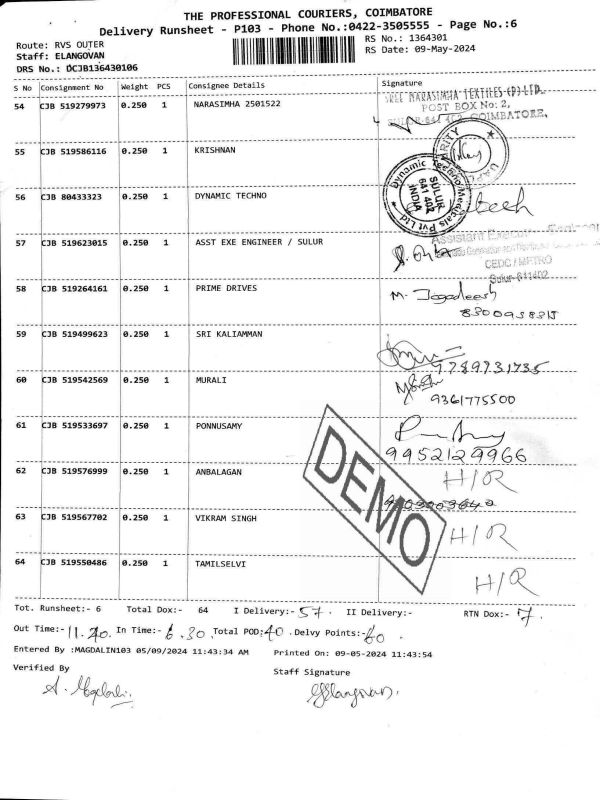 THE PROFESSIONAL COURIERS, COIMBATORE
Delivery Runsheet - P103 - Phone No.:0422-3505555 - Page No.:6
Route: RVS OUTER
RS No.: 1364301
Staff: ELANGOVAN
RS Date: 09-May-2024
DRS No.: DCJB136430106
S No Consignment No Weight PCS Consignee Details Signature
54 CJB 519279973 0.250 1 NARASIMHA 2501522
SREE NARASIMHA TEXTILES (P) LTD.
POST BOX No: 2,
SULUR-641 402, COIMBATORE,
55 CJB 519586116 0.250 1 KRISHNAN
56 CJB 80433323 0.250 1 DYNAMIC TECHNO
Dynamic Techno Medicals Pvt Ltd
SULUR
641 402
INDIA
57 CJB 519623015 0.250 1 ASST EXE ENGINEER / SULUR
Assistant
CEDC / METRO
58 CJB 519264161 0.250 1 PRIME DRIVES
M. Jagadeesh
59 CJB 519499623 0.250 1 SRI KALIAMMAN
9789731735
60 CJB 519542569 0.250 1 MURALI
9361775500
61 CJB 519533697 0.250 1 PONNUSAMY
9952129966
62 CJB 519576999 0.250 1 ANBALAGAN
H/R
63 CJB 519567702 0.250 1 VIKRAM SINGH
H/R
64 CJB 519550486 0.250 1 TAMILSELVI
H/R
DEMO
Tot. Runsheet:- 6 Total Dox:- 64 I Delivery:- 57. II Delivery:- RTN Dox:- 7.
Out Time:- 11.20. In Time:- 6.30. Total POD: 40. Delvy Points:- 60.
Entered By :MAGDALIN103 05/09/2024 11:43:34 AM Printed On: 09-05-2024 11:43:54
Verified By
Staff Signature